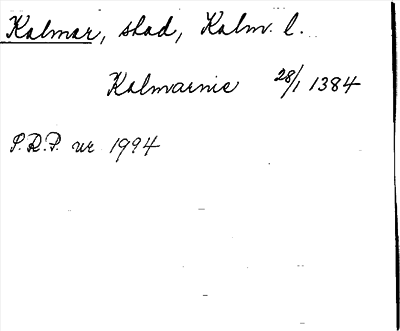 Kalmar, stad, Kalm. l.
Kalmarnie 28/1 1384
S.R.P. nr 1994